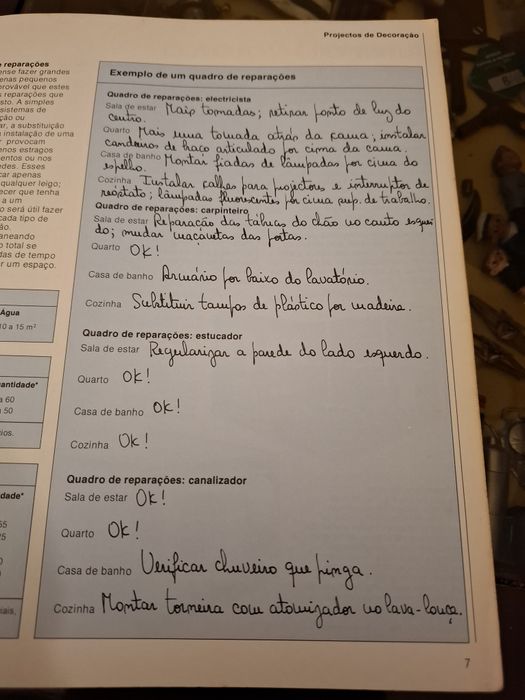 Projectos de Decoração
reparações
ense fazer grandes
enas pequenos
provável que estes
s reparações que
sto. A simples
sistemas de
ção ou
ar, a substituição
instalação de uma
r provocam
nos estragos
entos ou nos
edes. Esses
car apenas
qualquer leigo;
ecer que tenha
a um
o será útil fazer
cada tipo de
ão.
aneando
o total se
das de tempo
r um espaço.
Água
10 a 15 m²
antidade*
a 60
50
ios.
dade*
65
25
Exemplo de um quadro de reparações
Quadro de reparações: electricista
Sala de estar Mais tomadas; retirar ponto de luz do
centro.
Quarto Mais uma tomada atrás da cama; instalar
candeeiros de braço articulado por cima da cama.
Casa de banho Montar fiadas de lâmpadas por cima do
espelho.
Cozinha Instalar calhas para projectores e interruptor de
reóstato; lâmpadas fluorescentes por cima sup. de trabalho.
Quadro de reparações: carpinteiro
Sala de estar Reparação das tábuas do chão no canto esquer
do; mudar maçanetas das portas.
Quarto Ok!
Casa de banho Armário por baixo do lavatório.
Cozinha Substituir tampos de plástico por madeira.
Quadro de reparações: estucador
Sala de estar Regularizar a parede do lado esquerdo.
Quarto Ok!
Casa de banho Ok!
Cozinha Ok!
Quadro de reparações: canalizador
Sala de estar Ok!
Quarto Ok!
Casa de banho Verificar chuveiro que pinga.
Cozinha Montar torneira com atomizador no lava-louça.
7